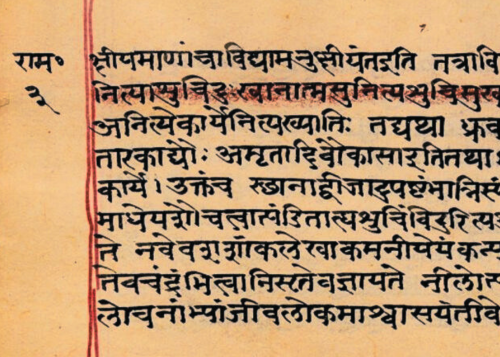 राम॰
३
क्षीयमाणांचाविद्यामनुक्षीयंतइति तत्रावि
नित्याशुचिदुःखानात्मसुनित्यशुचिसुख
अनित्येकार्येनित्यख्यातिः तद्यथा ध्रुव
तारकाद्यौः अमृतादिवौकसाइतितथा
कार्ये। उक्तंच स्छानाद्बीजादुपष्टंभान्निस्यं
माधेयशौचत्वात्पंडितात्यशुचिंविदुरित्य
ते नवेवशशांकलेखाकमनीयेयंकन्य
तेवचंद्रंभित्वानिसृतेवज्ञायते नीलोत्प
लोचनाभ्यांजीवलोकमाश्वासयंतीवे